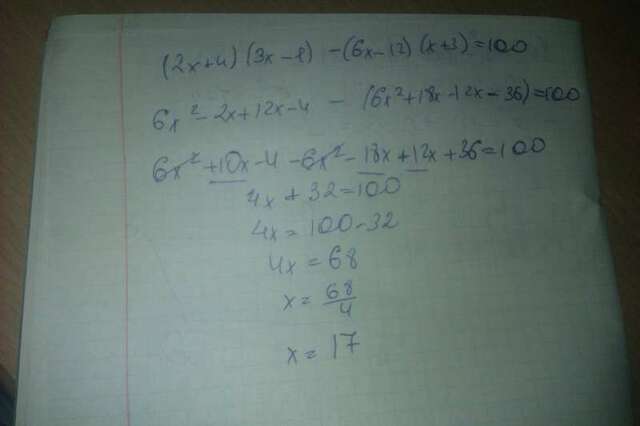 (2x+4) (3x-1) -(6x-12) (x+3)=100
6x²-2x+12x-4 - (6x²+18x-12x-36)=100
6x²+10x-4-6x²-18x+12x+36=100
4x+32=100
4x=100-32
4x=68
x=68/4
x=17